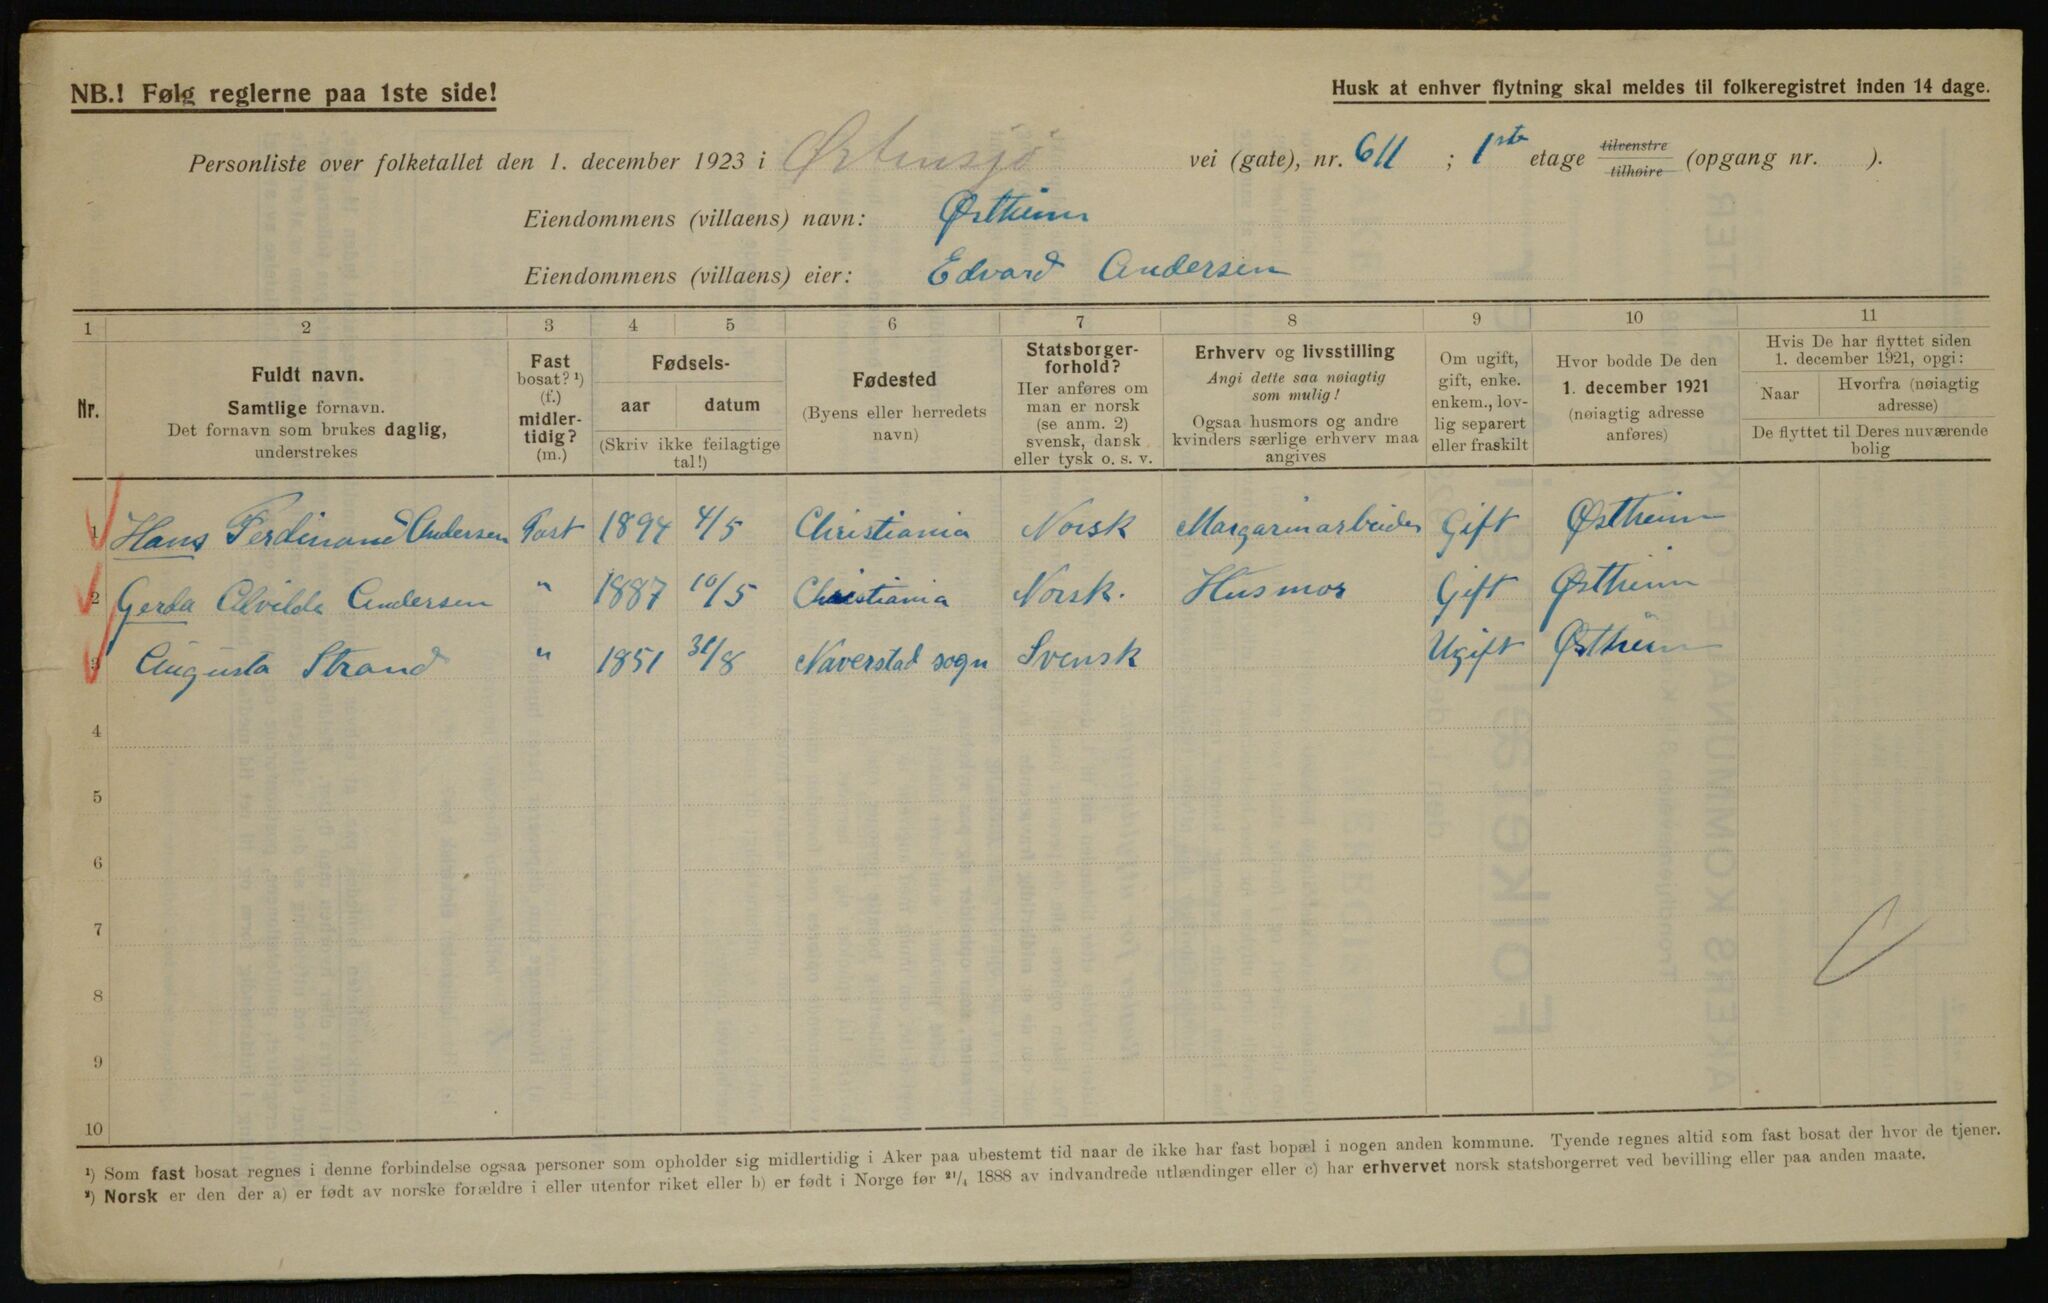 NB.! Følg reglerne paa 1ste side!
Husk at enhver flytning skal meldes til folkeregistret inden 14 dage.
Personliste over folketallet den 1. december 1923 i Østensjø vei (gate), nr. 611 ; 1ste etage tilvenstre tilhøire (opgang nr. ).
Eiendommens (villaens) navn: Østheim
Eiendommens (villaens) eier: Edvard Andersen
1 2 3 4 5 6 7 8 9 10 11
Nr.
Fuldt navn.
Samtlige fornavn.
Det fornavn som brukes daglig,
understrekes
Fast
bosat? ¹)
(f.)
midler-
tidig?
(m.)
Fødsels-
aar datum
(Skriv ikke feilagtige
tal!)
Fødested
(Byens eller herredets
navn)
Statsborger-
forhold?
Her anføres om
man er norsk
(se anm. 2)
svensk, dansk
eller tysk o. s. v.
Erhverv og livsstilling
Angi dette saa nøiagtig
som mulig!
Ogsaa husmors og andre
kvinders særlige erhverv maa
angives
Om ugift,
gift, enke.
enkem., lov-
lig separert
eller fraskilt
Hvor bodde De den
1. december 1921
(nøiagtig adresse
anføres)
Hvis De har flyttet siden
1. december 1921, opgi:
Naar
Hvorfra (nøiagtig
adresse)
De flyttet til Deres nuværende
bolig
1 Hans Ferdinand Andersen Fast 1894 4/5 Christiania Norsk Margarinarbeider Gift Østheim
2 Gerda Alvilda Andersen " 1887 10/5 Christiania Norsk. Husmor Gift Østheim
3 Augusta Strand " 1851 31/8 Naverstad sogn Svensk Ugift Østheim
4
5
6
7
8
9
10
¹) Som fast bosat regnes i denne forbindelse ogsaa personer som opholder sig midlertidig i Aker paa ubestemt tid naar de ikke har fast bopæl i nogen anden kommune. Tyende regnes altid som fast bosat der hvor de tjener.
²) Norsk er den der a) er født av norske forældre i eller utenfor riket eller b) er født i Norge før 21/4 1888 av indvandrede utlændinger eller c) har erhvervet norsk statsborgerret ved bevilling eller paa anden maate.